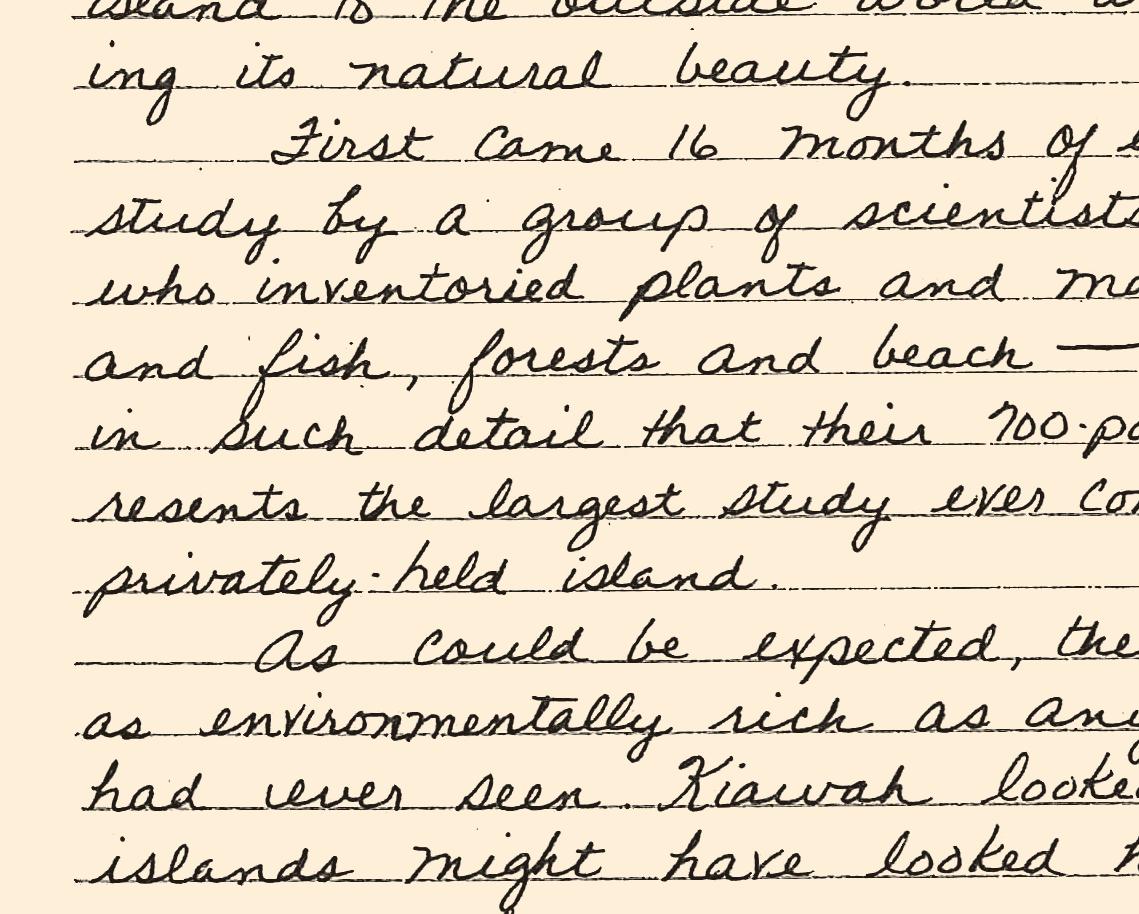 island to the outside world
ing its natural beauty.
First came 16 months of
study by a group of scientists
who inventoried plants and
and fish, forests and beach —
in such detail that their 700-
resents the largest study ever
privately-held island.
As could be expected, the
as environmentally rich as
had uever seen. Kiawah
islands might have looked